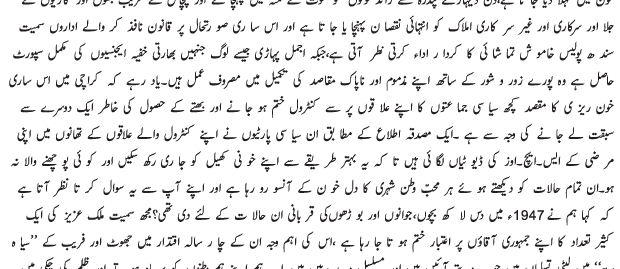 جلا اور سرکاری اور غیر سر کاری املاک کو انتہائی نقصا ن پہنچا یا جا تا ہے اور اس سا ری صو رتحال پر قانون نافذ کر والے اداروں سمیت
سند ھ پولیس خامو ش تما شا ئی کا کردا ر اداء کرتی نظر آتی ہے،جبکہ اجمل پہاڑی جیسے لوگ جنھیں بھارتی خفیہ ایجنسیوں کی مکمل سپورٹ
حاصل ہے وہ پورے زور و شور کے ساتھ اپنے مذموم اور ناپاک مقاصد کی تکمیل میں مصروف عمل ہیں۔یاد رہے کہ کراچی میں اس ساری
خون ریز ی کا مقصد کچھ سیا سی جما عتوں کا اپنے علا قوں پر سے کنٹرول ختم ہو جا نے اور بھتے کے حصول کی خاطر ایک دوسرے سے
سبقت لے جا نے کی وجہ سے ہے ۔ایک مصدقہ اطلاع کے مطا بق ان سیا سی پارٹیوں نے اپنے کنٹرول والے علاقوں کے تھانوں میں اپنی
مر ضی کے ایس۔ایچ۔اوز کی ڈیو ٹیاں لگا ئی ہیں تا کہ یہ بہتر طر یقے سے اپنے خو نی کھیل کو جا ری رکھ سکیں اور کو ئی پو چھنے والا نہ
ہو۔ان تمام حالات کو دیکھتے ہو ئے ہر محبّ وطن شہری کا دل خو ن کے آنسو رو رہا ہے اور اپنے آپ سے یہ سوال کر تا نظر آتا ہے
کہ کیا ہم نے 1947ء میں دس لا کھ بچوں،جوانوں اور بو ڑھوں کی قر بانی ان حالا ت کے لئے دی تھی؟مجھ سمیت ملک عزیز کی ایک
کثیر تعداد کا اپنے جمہوری آقاؤں پر اعتبار ختم ہو تا جا رہا ہے ،اس کی اہم وجہ ان کے چا ر سالہ اقتدار میں جھوٹ اور فریب کے ’’سیا ہ